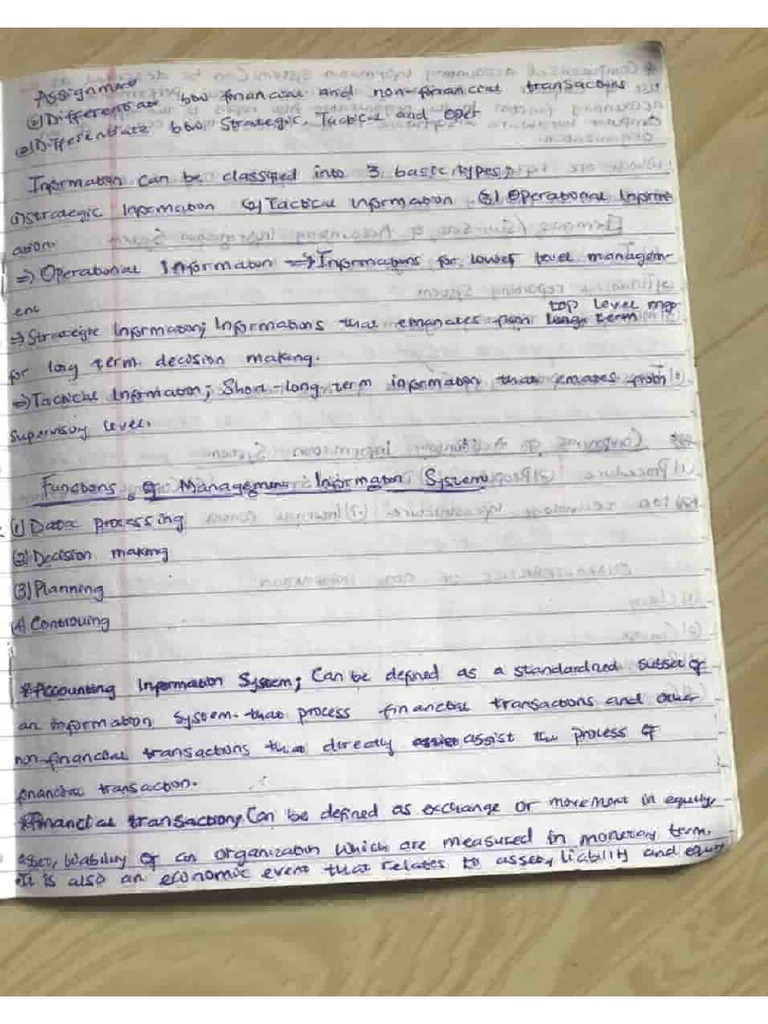 Assignment
(1) Differentiate btw financial and non-financial transactions
(2) Differentiate btw Strategic, Tactical and Oper
Information can be classified into 3 basic types;
(1) Strategic Information (2) Tactical Information (3) Operational Inform
ation.
⇒ Operational Information ⇒ Informations for lower level managem-
ent
top level mgt
⇒ Strategic Information; Informations that emanates from long term
for long term decision making.
⇒ Tactical Information; Short-long term information that emates from
supervisory level.
Functions of Management Information System
(1) Data processing
(2) Decision making
(3) Planning
(4) Controlling
*Accounting Information System; Can be defined as a standardized subset of
an information system that process financial transactions and other
non-financial transactions that directly assist the process of
financial transaction.
*Financial transaction; Can be defined as exchange or movement in equity,
asset, liability of an organization which are measured in monetary term.
It is also an economic event that relates to asset, liability and equity